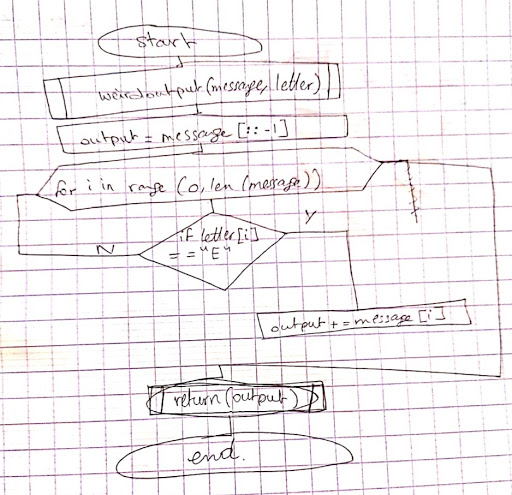 start
weirdoutput(message, letter)
output = message [::-1]
for i in range (0, len (message))
if letter[i]
= = "E"
Y
N
output + = message [i]
return (output)
end.